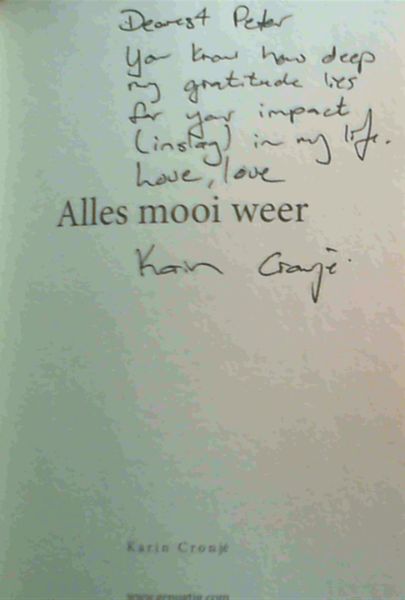 Dearest Peter
You know how deep
my gratitude lies
for your impact
(inslag) in my life.
Love, love
Alles mooi weer
Karin Cronjé.
Karin Cronjé